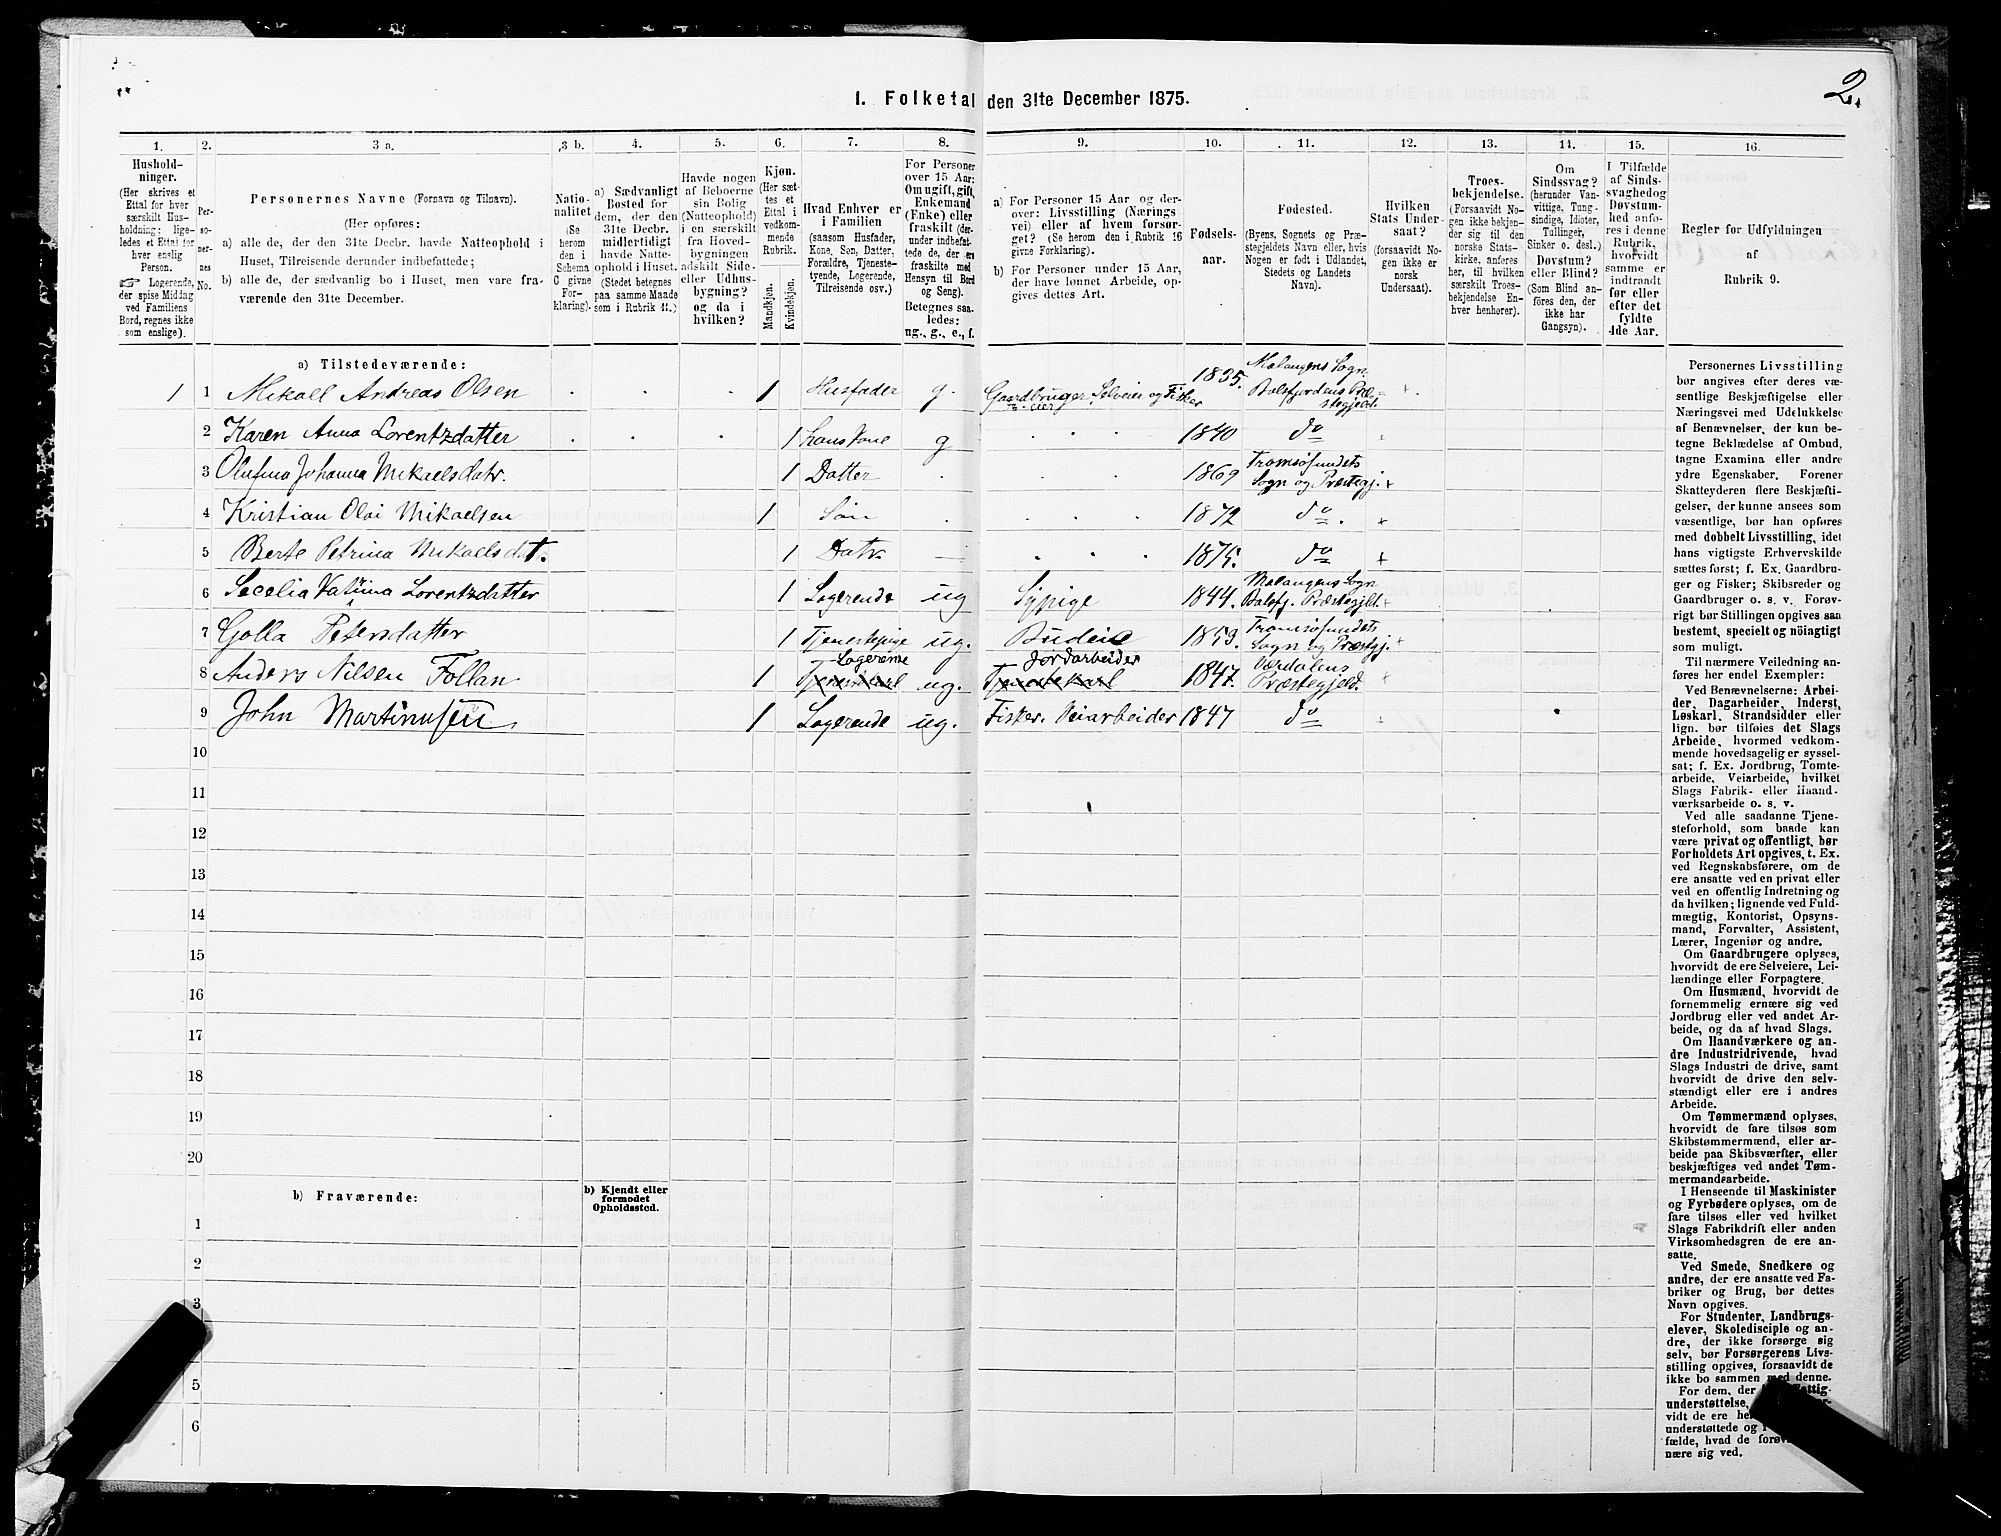 2.
I. Folketal den 31te December 1875.
1. 2. 3 a. 3 b. 4. 5. 6. 7. 8. 9. 10. 11. 12. 13. 14. 15. 16.
Hushold-
ninger.
(Her skrives et
Ettal for hver
særskilt Hus-
holdning; lige-
ledes et Ettal for
hver enslig
Person.
☞ Logerende,
der spise Middag
ved Familiens
Bord, regnes ikke
som enslige).
Per-
so-
ner-
nes
No.
Personernes Navne (Fornavn og Tilnavn).
(Her opføres:
a) alle de, der den 31te Decbr. havde Natteophold i
Huset, Tilreisende derunder indbefattede;
b) alle de, der sædvanlig bo i Huset, men vare fra-
værende den 31te December.
Natio-
nalitet
(Se
herom
den i
Schema
C givne
For-
klaring).
a) Sædvanligt
Bosted for
dem, der den
31te Decbr.
midlertidigt
havde Natte-
ophold i Huset.
(Stedet betegnes
paa samme Maade
som i Rubrik 11.)
Havde nogen
af Beboerne
sin Bolig
(Natteophold)
i en særskilt
fra Hoved-
bygningen
adskilt Side-
eller Udhus-
bygning?
og da i
hvilken?
Kjøn.
(Her sæt-
tes et
Ettal i
vedkom-
mende
Rubrik.
Mandkjøn.
Kvindekjøn.
Hvad Enhver er
i Familien
(saasom Husfader,
Kone, Søn, Datter,
Forældre, Tjeneste-
tyende, Logerende,
Tilreisende osv.)
For Personer
over 15 Aar:
Om ugift, gift,
Enkemand
(Enke) eller
fraskilt (der-
under indbefat-
tede de, der ere
fraskilte med
Hensyn til Bord
og Seng).
Betegnes saa-
ledes:
ug., g., e., f.
a) For Personer 15 Aar og der-
over: Livsstilling (Nærings
vei) eller af hvem forsør-
get? (Se herom den i Rubrik 16
givne Forklaring).
b) For Personer under 15 Aar,
der have lønnet Arbeide, op-
gives dettes Art.
Fødsels-
aar.
Fødested.
(Byens, Sognets og Præ-
stegjeldets Navn eller, hvis
Nogen er født i Udlandet,
Stedets og Landets
Navn).
Hvilken
Stats Under-
saat?
(forsaavidt No-
gen ikke er
norsk
Undersaat).
Troes-
bekjendelse.
(Forsaavidt No-
gen ikke bekjen-
der sig til den
norske Stats-
kirke, anføres
her, til hvilken
særskilt Troes-
bekjendelse En-
hver henhører).
Om
Sindssvag?
(herunder Van-
vittige, Tung-
sindige, Idioter,
Tullinger,
Sinker o. desl.)
Døvstum?
eller Blind?
(Som Blind an-
føres den, der
ikke har
Gangsyn).
I Tilfælde
af Sinds-
svaghed og
Døvstum-
hed anfø-
res i denne
Rubrik,
hvorvidt
samme er
indtraadt
før eller
efter det
fyldte
4de Aar.
Regler for Udfyldningen
af
Rubrik 9.
a) Tilstedeværende:
1 1 Mikall Andreas Olsen 1 Husfader g. Gaardbruger, Selveier og Fisker 1835. Malangens Sogn Balsfjordens Præstegjeld.
2 Karen Anna Lorentzdatter 1 hans Kone g 1840 do
3 Olufina Johanna Mikaelsdatr. 1 Datter 1869 Tromsøsundets Sogn og Præstegj. +
4 Kristian Olai Mikaelsen 1 Søn 1872 do +
5 Berte Petrina Mikaelsdat. 1 Datr. 1875. do +
6 Secelia Lorentzdatter 1 Logerende ug Sypige 1844. Malangens Sogn Balsfj. Præstegjeld. +
7 Golla Petersdatter 1 Tjenestepige ug. Budeie 1853. Tromsøsundets Sogn og Præstegj. +
8 Anders Nilsen Follan 1 Logerende Tjenestekarl ug. Jordarbeider Tjenestekarl 1847. Værdalens Præstegjeld. +
9 John Martinusen 1 Logerende ug. Fisker. Veiarbeider 1847 do +
10
11
12
13
14
15
16
17
18
19
20
b) Fraværende:
b) Kjendt eller
formodet
Opholdssted.
1
2
3
5
6
Personernes Livsstilling
bør angives efter deres væ-
sentlige Beskjæftigelse eller
Næringsvei med Udelukkelse
af Benævnelser, der kun be-
tegne Beklædelse af Ombud,
tagne Examina eller andre
ydre Egenskaber. Forener
Skatteyderen flere Beskjæfti-
gelser, der kunne ansees som
væsentlige, bør han opføres
med dobbelt Livsstilling, idet
hans vigtigste Erhvervskilde
sættes først; f. Ex. Gaardbru-
ger og Fisker; Skibsreder og
Gaardbruger o. s. v. Forøv-
rigt bør Stillingen opgives saa
bestemt, specielt og nöiagtigt
som muligt.
Til nærmere Veiledning an-
føres her endel Exempler:
Ved Benævnelserne: Arbei-
der, Dagarbeider, Inderst,
Løskarl, Strandsidder eller
lign. bør tilføies det Slags
Arbeide, hvormed vedkom-
mende hovedsagelig er syssel-
sat; f. Ex. Jordbrug, Tomte-
arbeide, Veiarbeide, hvilket
Slags Fabrik- eller Haand-
værksarbeide o. s. v.
Ved alle saadanne Tjene-
steforhold, som baade kan
være privat og offentligt, bør
Forholdets Art opgives, t. Ex.
ved Regnskabsførere, om de
ere ansatte ved en privat eller
ved en offentlig Indretning og
da hvilken; lignende ved Fuld-
mægtig, Kontorist, Opsyns-
mand, Forvalter, Assistent,
Lærer, Ingeniør og andre.
Om Gaardbrugere oplyses,
hvorvidt de ere Selveiere, Lei-
lændinge eller Forpagtere.
Om Husmænd, hvorvidt de
fornemmelig ernære sig ved
Jordbrug eller ved andet Ar-
beide, og da af hvad Slags.
Om Haandværkere og an-
dre Industridrivende, hvad
Slags Industri de drive, samt
hvorvidt de drive den selv-
stændigt eller ere i andres
Arbeide.
Om Tømmermænd oplyses,
hvorvidt de fare tilsøs som
Skibstømmermænd, eller ar-
beide paa Skibsværfter, eller
beskjæftiges ved andet Tøm-
mermandsarbeide.
I Henseende til Maskinister
og Fyrbødere oplyses, om de
fare tilsøs eller ved hvilket
Slags Fabrikdrift eller anden
Virksomhedsgren de ere an-
satte.
Ved Smede, Snedkere og
andre, der ere ansatte ved Fa-
briker og Brug, bør dettes
Navn opgives.
For Studenter, Landbrugs-
elever, Skoledisciple og an-
dre, der ikke forsørge sig
selv, bør Forsørgerens Livs-
stilling opgives, forsaavidt de
ikke bo sammen med denne.
For dem, der Fattig-
understøttelse,
vidt de ere
understøttede og
fælde, hvad de
nære sig ved.